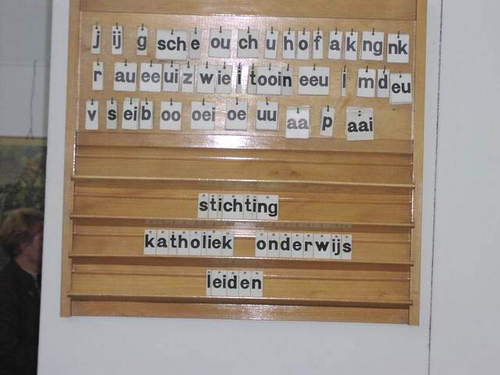 j ij g sch e ou ch u h o f a k ng nk
r au ee ui z w ie i t ooi n eeu l m d eu
v s ei b oo oei oe uu aa p aai
stichting
katholiek onderwijs
leiden